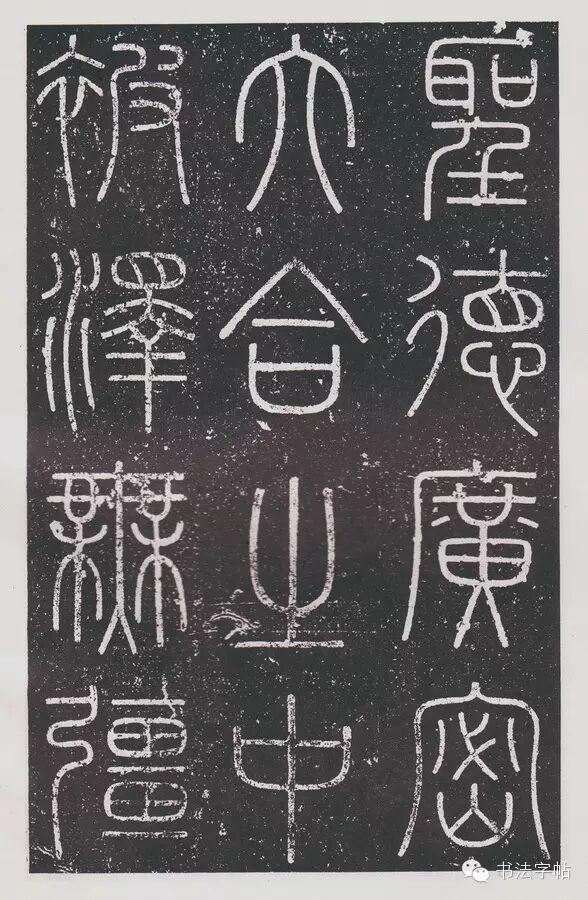 聖德廣密
六合之中
被澤無疆
书法字帖